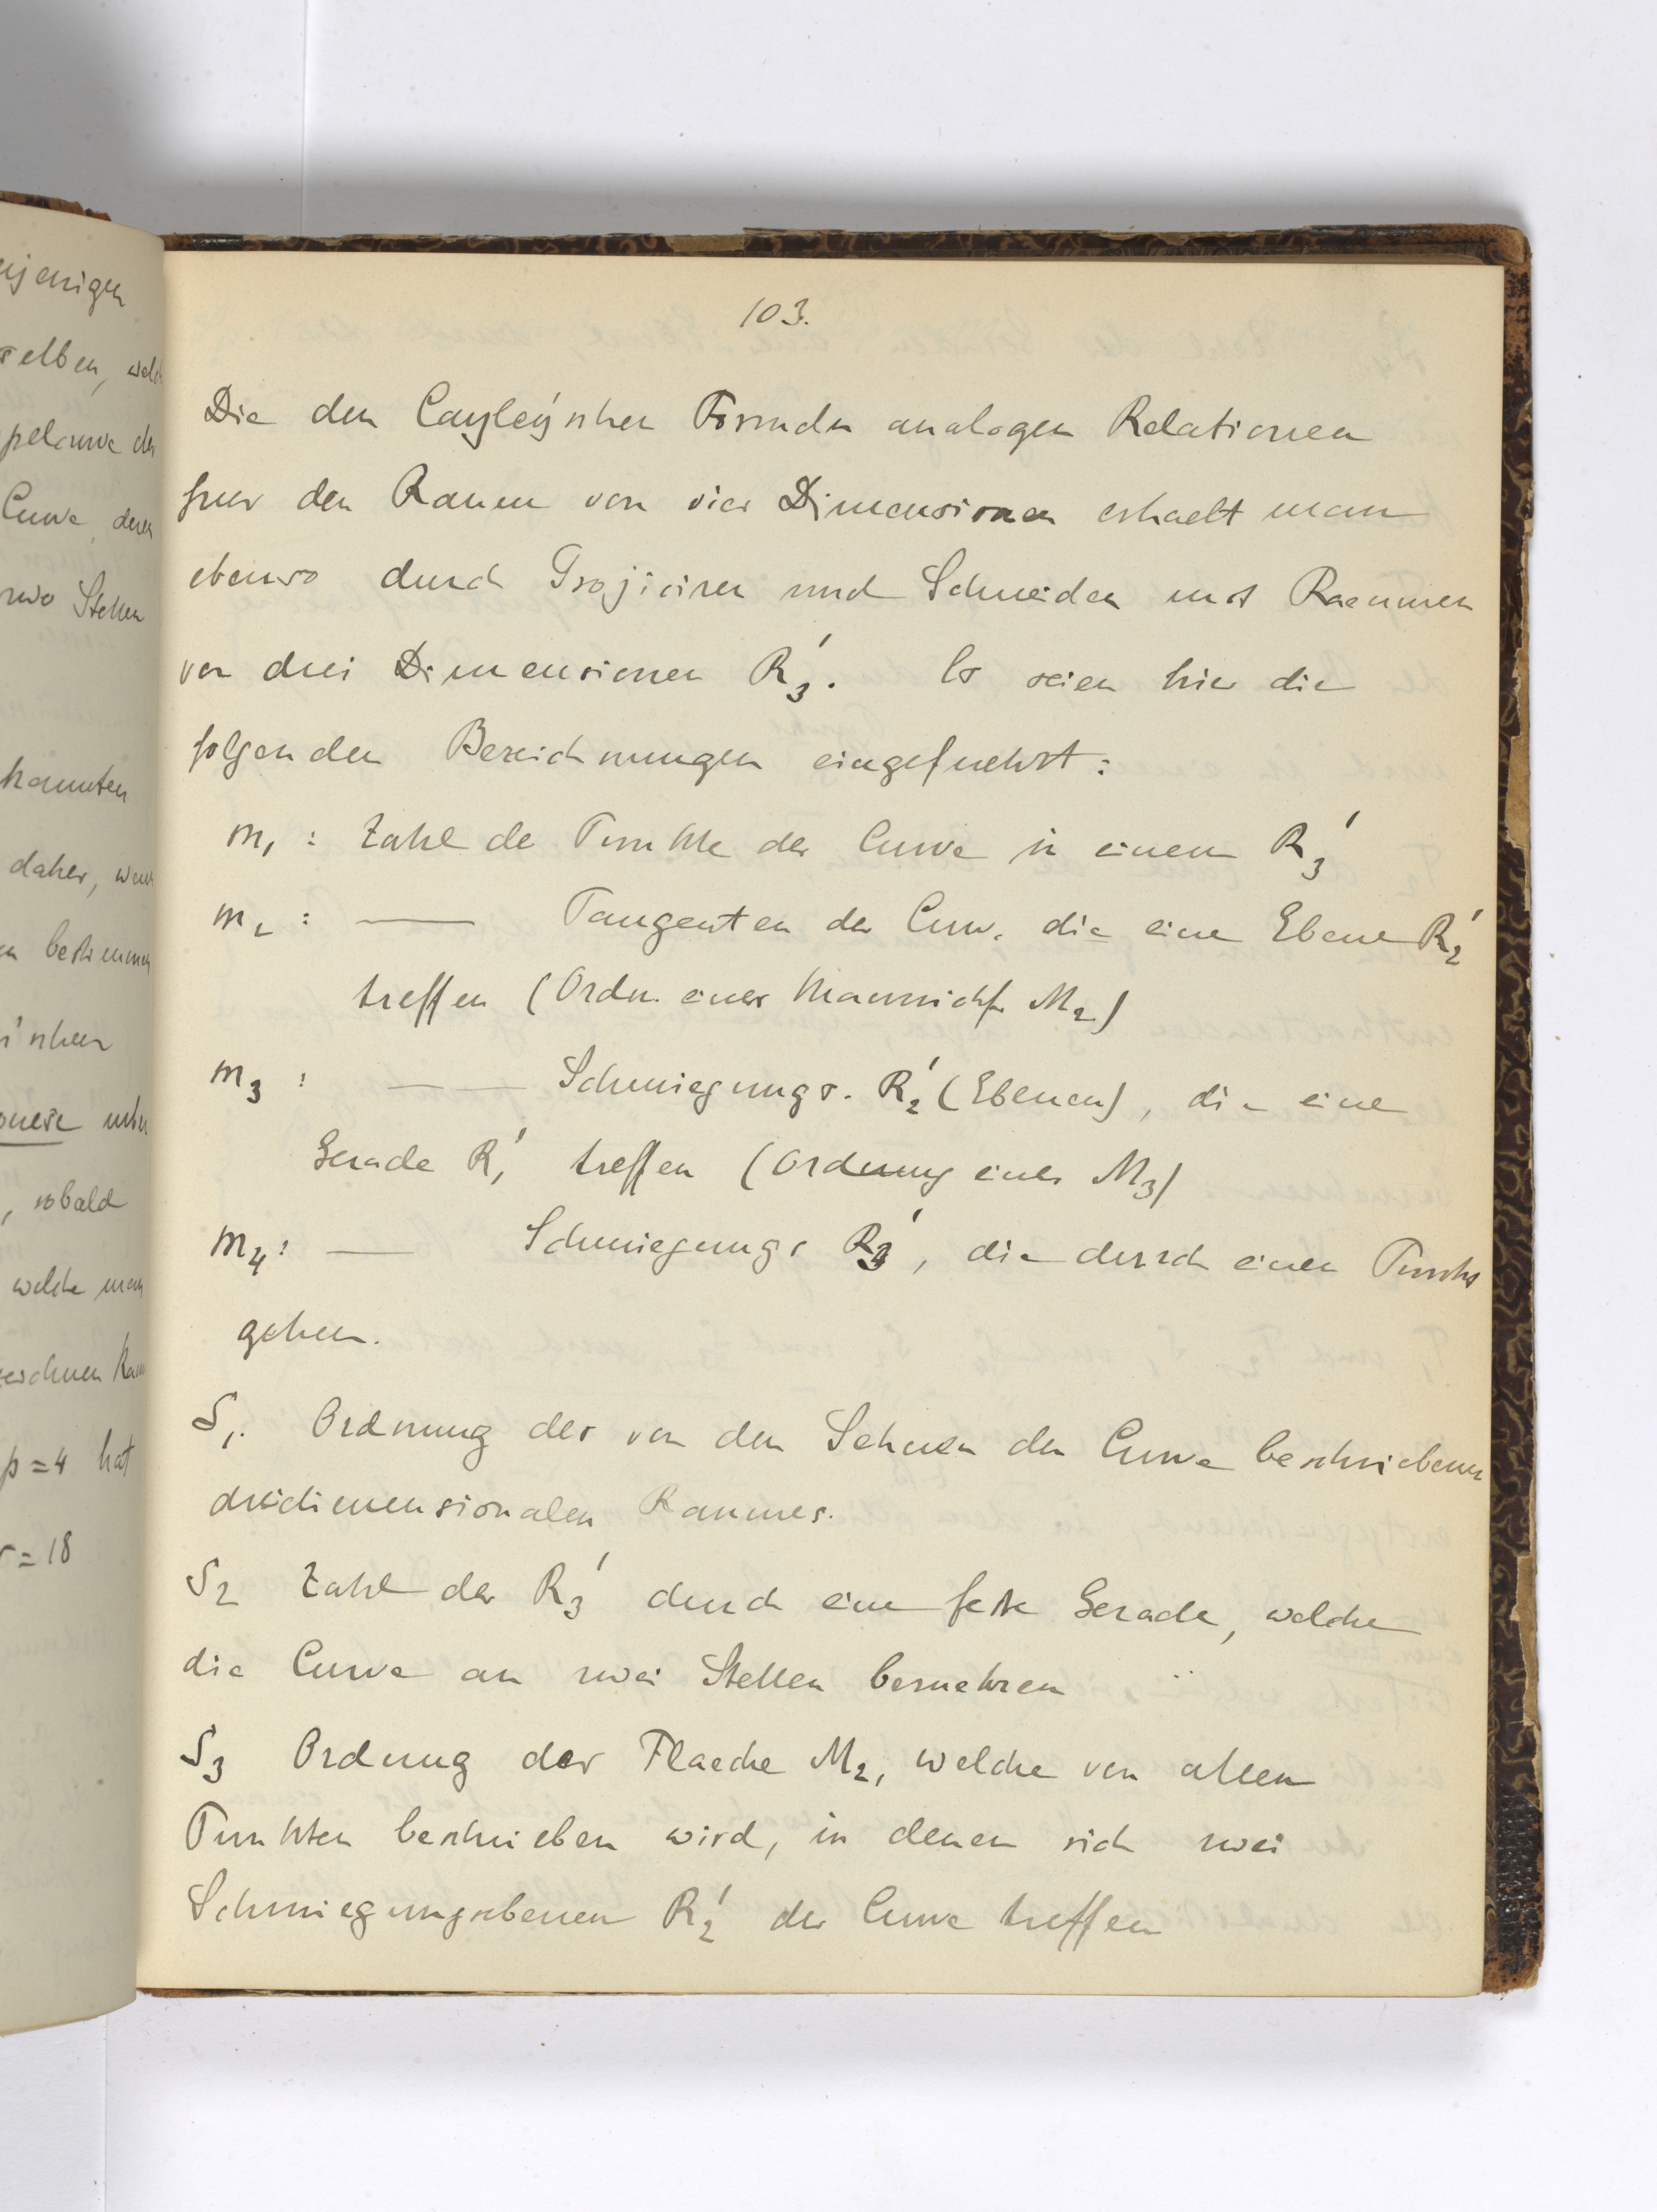 enjenigen
selben, welch
pelcurve der
Curve, deren
zwo Stellen
kannten
daher, wenn
n bestimmen
i'schen
onese
, sobald
welche man
p = 4 hat
r = 18
103.
Die den Cayley'schen Formeln analogen Relationen
fuer den Raum von vier Dimensionen erhaelt man
ebenso durch Projiciren und Schneiden mit Raeumen
von drei Dimensionen R₃'. Es seien hier die
folgenden Bezeichnungen eingefuehrt:
m₁ : Zahl de Punkte der Curve in einem R₃'
m₂ : —— Tangenten der Curv. die eine Ebene R₂'
treffen (Ordn. einer Mannichf. M₂)
m₃ : —— Schmiegungs. R₂' (Ebenen), die eine
Gerade R₁' treffen (Ordnung einer M₃)
m₄ : —— Schmiegungs R₃', die durch einen Punkt
gehen.
S₁. Ordnung des von den Sehnen der Curve beschriebenen
dreidimensionalen Raumes.
S₂ Zahl der R₃' durch eine feste Gerade, welche
die Curve an zwei Stellen beruehren
S₃ Ordnung der Flaeche M₂, welche von allen
Punkten beschrieben wird, in denen sich zwei
Schmiegungsebenen R₂' der Curve treffen